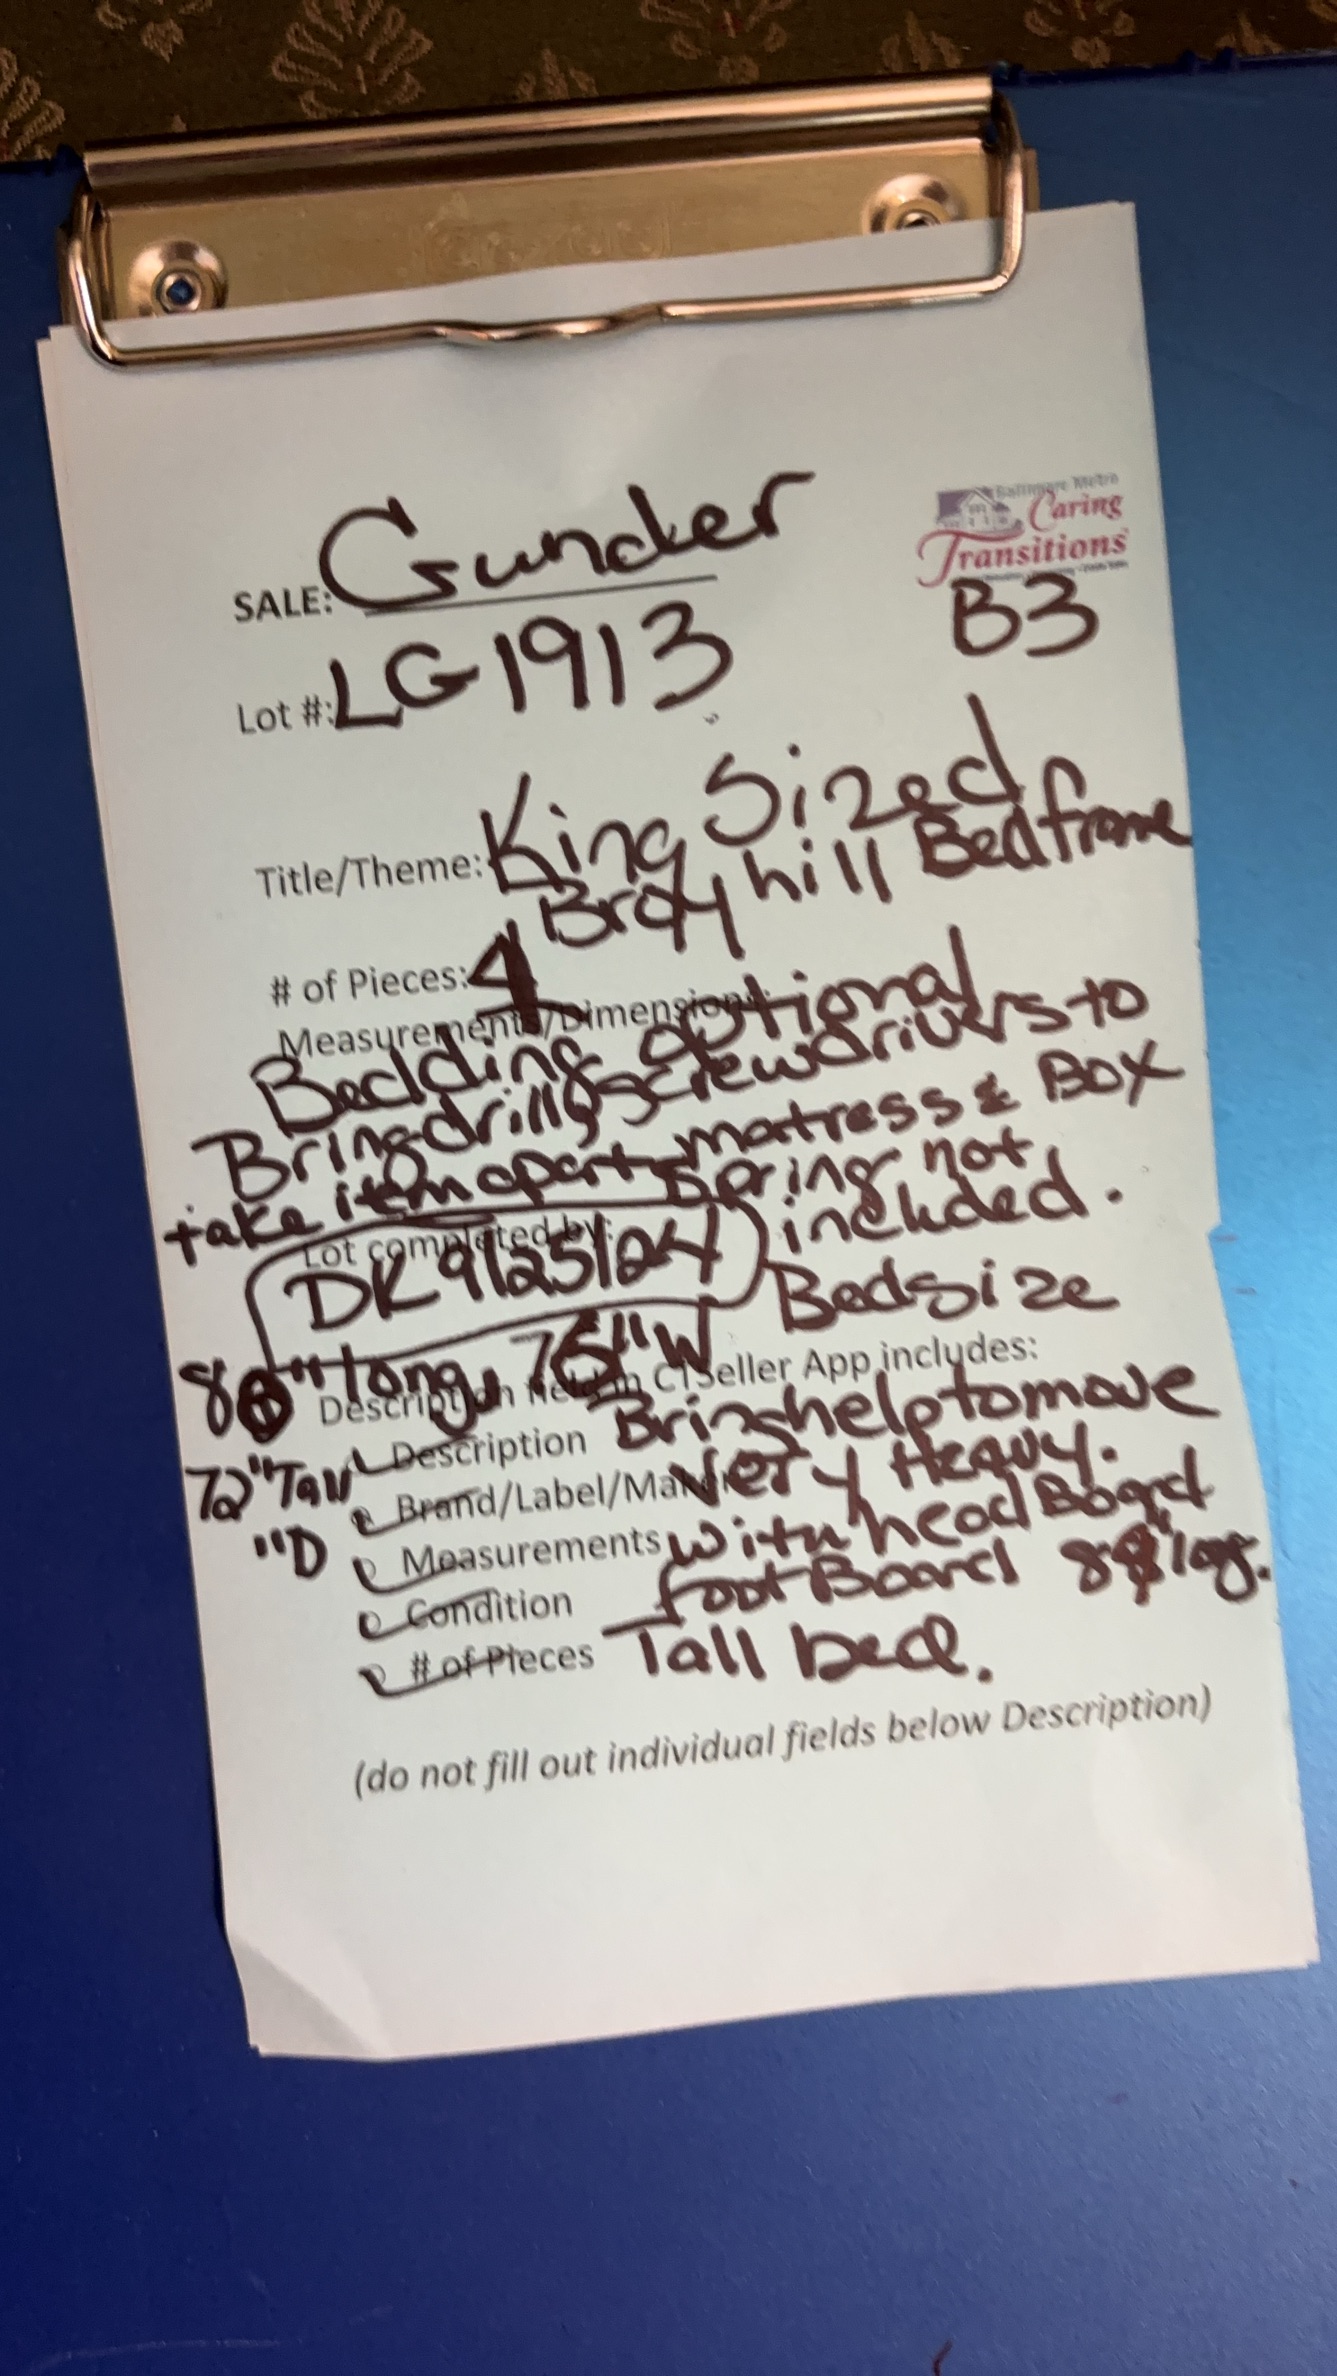 Baltimore Metro
Caring
Transitions
SALE: Gunder
B3
Lot #: LG1913
Title/Theme: King Sized
Broyhill Bedframe
# of Pieces: 4
Measurements/Dimensions:
Bedding optional
Bring drill, screwdrivers to
take item apart matress & BOX
spring not
included.
Lot completed by:
DK 9/25/24
Bedsize
long, 76"W
Description field in CTSeller App includes:
Description Bring help to move
72" Tall
Brand/Label/Maker Very Heavy.
"D
Measurements with head Board
Condition foot Board long.
# of Pieces Tall bed.
(do not fill out individual fields below Description)